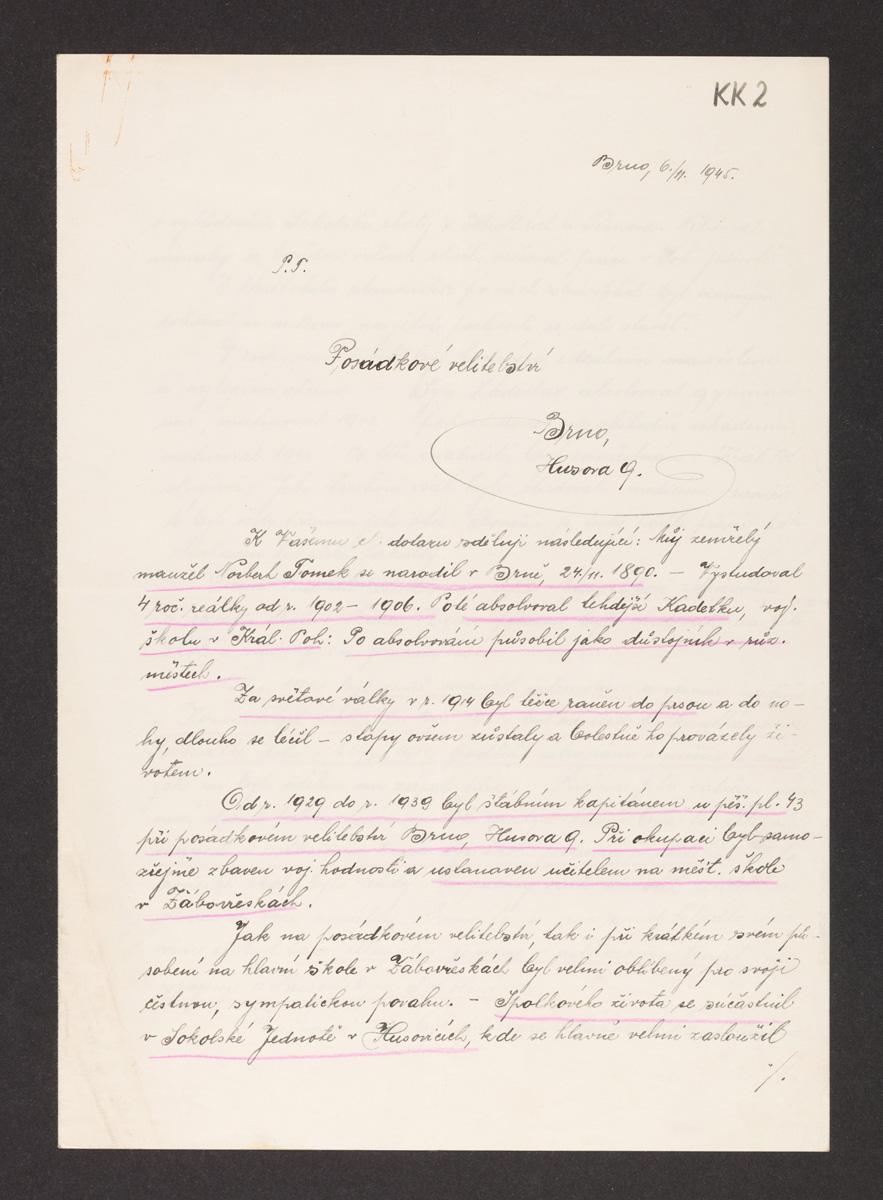 KK 2
Brno, 6./11. 1945.
P. T.
Posádkové velitelství
Brno,
Husova 9.
K Vašemu dotazu sděluji následující: Můj zemřelý
manžel Norbert Tomek se narodil v Brně, 24./11. 1890. — Vystudoval
4 roč. reálky od r. 1902 – 1906. Poté absolvoval tehdejší Kadetku, voj.
školu v Král. Poli: Po absolvování působil jako důstojník v růz.
městech.
Za světové války v r. 1914 byl těžce raněn do prsou a do no-
hy, dlouho se léčil – stopy ovšem zůstaly a bolestně ho provázely ži-
votem.
Od r. 1929 do r. 1939 byl štábním kapitánem u pěš. pl. 43
při posádkovém velitelství Brno, Husova 9. Při okupaci byl samo-
zřejmě zbaven voj. hodnosti a ustanoven učitelem na měšt. škole
v Žabovřeskách.
Jak na posádkovém velitelství, tak i při krátkém svém pů-
sobení na hlavní škole v Žabovřeskách byl velmi oblíbený pro svoji
čestnou, sympatickou povahu. – Spolkového života se súčastnil
v Sokolské Jednotě v Husovicích, kde se hlavně velmi zasloužil
./.